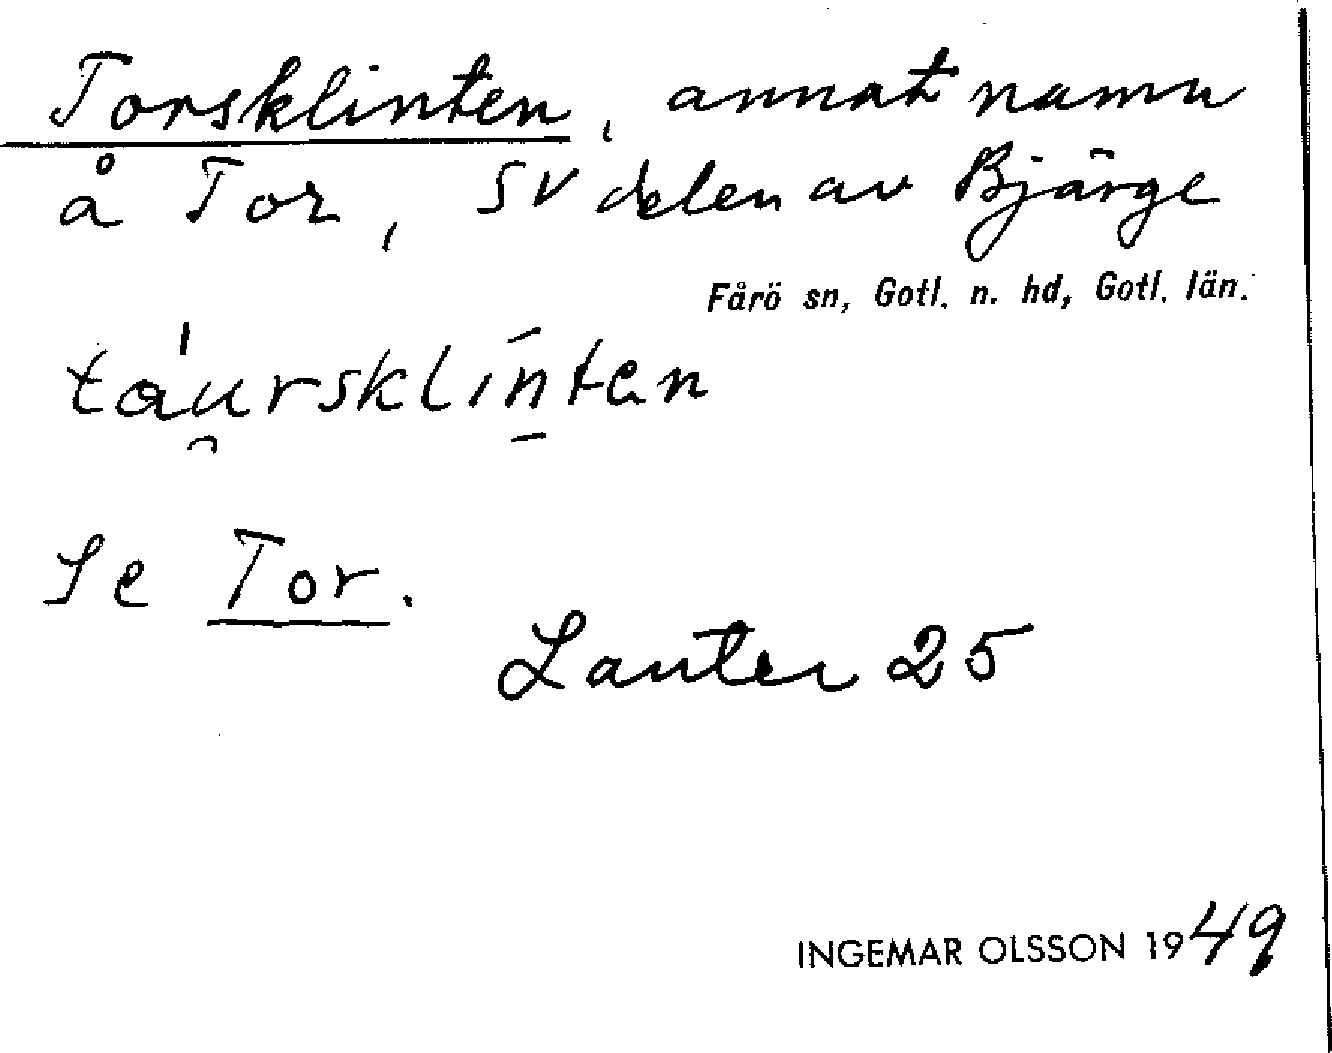 Torsklinten, annat namn
å Tor, SV delen av Bjärge
Fårö sn, Gotl. n. hd, Gotl. län.
táu̯rsklīn̠ten
Se Tor.
Lauter 25
INGEMAR OLSSON 1949